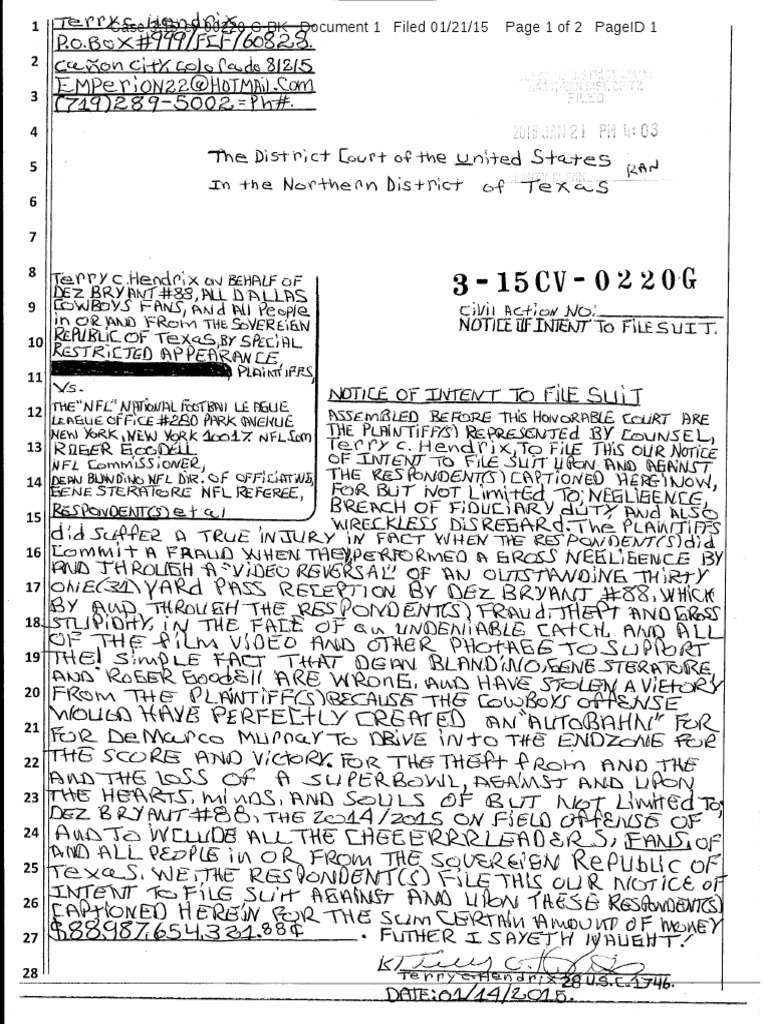 Case 3:15-cv-00220-G-BK Document 1 Filed 01/21/15 Page 1 of 2 PageID 1
1 Terry C. Hendrix
P.O. BOX #999/FCF/60828.
2 Cañon City Colorado 81215
EMPerion22@HOTMAil.Com
3 (719)289-5002=Ph#.
FILED
4 2015 JAN 21 PM 4:03
The District Court of the United States
5 RAN
In the Northern District of Texas
6
7
8 Terry C. Hendrix ON BEHALF OF
DEZ BRYANT #88, ALL DALLAS
9 COWBOYS FANS, And All People
in OR AND FROM THE SOVEREIGN
10 REPUBLIC OF TEXAS, BY SPECIAL
RESTRICTED APPEARANCE,
11 PLAINTIFFS,
Vs.
12 THE "NFL" NATIONAL FOOTBALL LEAGUE
LEAGUE OFFICE #280 PARK AVENUE
NEW YORK, NEW YORK 10017. NFL.Com
13 ROGER GOODELL
NFL COMMISSIONER,
14 DEAN BLANDINO NFL DIR. OF OFFICIATING,
GENE STERATORE NFL REFEREE,
RESPONDENT(S) et al
3-15CV-0220G
CIVIL ACTION NO:
NOTICE OF INTENT TO FILE SUIT.
NOTICE OF INTENT TO FILE SUIT
ASSEMBLED BEFORE THIS HONORABLE COURT ARE
THE PLAINTIFF(S) REPRESENTED BY COUNSEL,
Terry C. Hendrix, TO FILE THIS OUR NOTICE
OF INTENT TO FILE SUIT UPON AND AGAINST
THE RESPONDENT(S) CAPTIONED HEREINOW,
FOR BUT NOT Limited TO; NEGLIGENCE,
BREACH OF FIDUCIARY DUTY AND ALSO
15 WRECKLESS DISREGARD. The PLAINTIFFS
did SUFFER A TRUE INJURY IN FACT WHEN THE RESPONDENT(S) did
16 COMMIT A FRAUD WHEN THEY PERFORMED A GROSS NEGLIGENCE BY
AND THROUGH A "VIDEO REVERSAL" OF AN OUTSTANDING THIRTY
17 ONE(31) YARD PASS RECEPTION BY DEZ BRYANT #88, WHICH
BY AND THROUGH THE RESPONDENT(S) FRAUD, THEFT AND GROSS
18 STUPIDITY, IN THE FACE OF an UNDENIABLE CATCH AND ALL
OF THE FILM VIDEO AND OTHER PHOTAGE TO SUPPORT
19 THE! SIMPLE FACT THAT DEAN BLANDINO, GENE STERATORE,
AND ROGER GOODELL ARE WRONG, AND HAVE STOLEN A VICTORY
20 FROM THE PLAINTIFF(S) BECAUSE THE COWBOYS OFFENSE
WOULD HAVE PERFECTLY CREATED AN "AUTOBAHN" FOR
21 FOR DEMARCO MURRAY TO DRIVE INTO THE ENDZONE FOR
THE SCORE AND VICTORY. FOR THE THEFT FROM AND THE
22 AND THE LOSS OF A SUPERBOWL, AGAINST AND UPON
23 THE HEARTS, MINDS, AND SOULS OF BUT NOT Limited TO;
DEZ BRYANT #88, THE 2014/2015 ON FIELD OFFENSE OF
24 AND TO INCLUDE ALL THE CHEEERRRLEADERS, FANS, OF
AND ALL PEOPLE in OR FROM THE SOVEREIGN REPUBLIC OF
25 TEXAS. WE, THE RESPONDENT(S) FILE THIS OUR NOTICE OF
INTENT TO FILE SUIT AGAINST AND UPON THESE RESPONDENT(S)
26 CAPTIONED HEREIN FOR THE SUM CERTAIN AMOUNT OF MONEY
27 $88,987,654,321.88¢. FUTHER I SAYETH NAUGHT!
28 Terry C. Hendrix 28 U.S.C. 1746.
DATE: 01/14/2015.